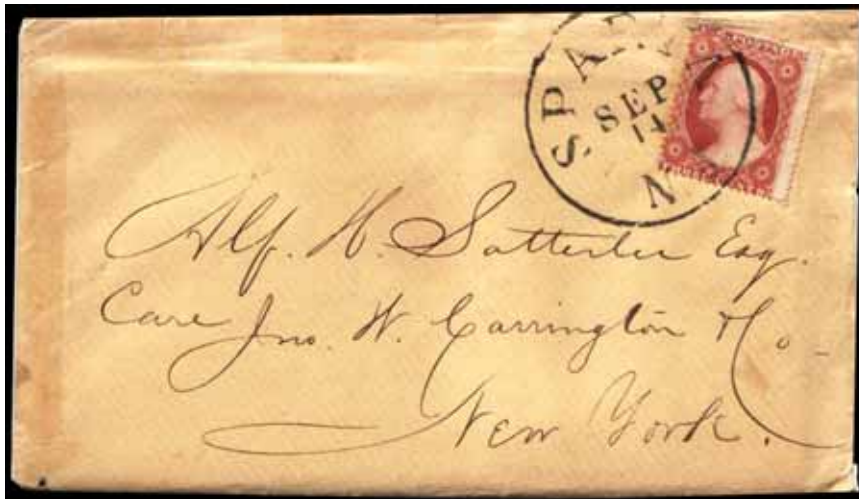 SPAR
SEP
14
N
Alf. H. Satterlee Esq.
Care Jno. W. Carrington & Co-
New York.